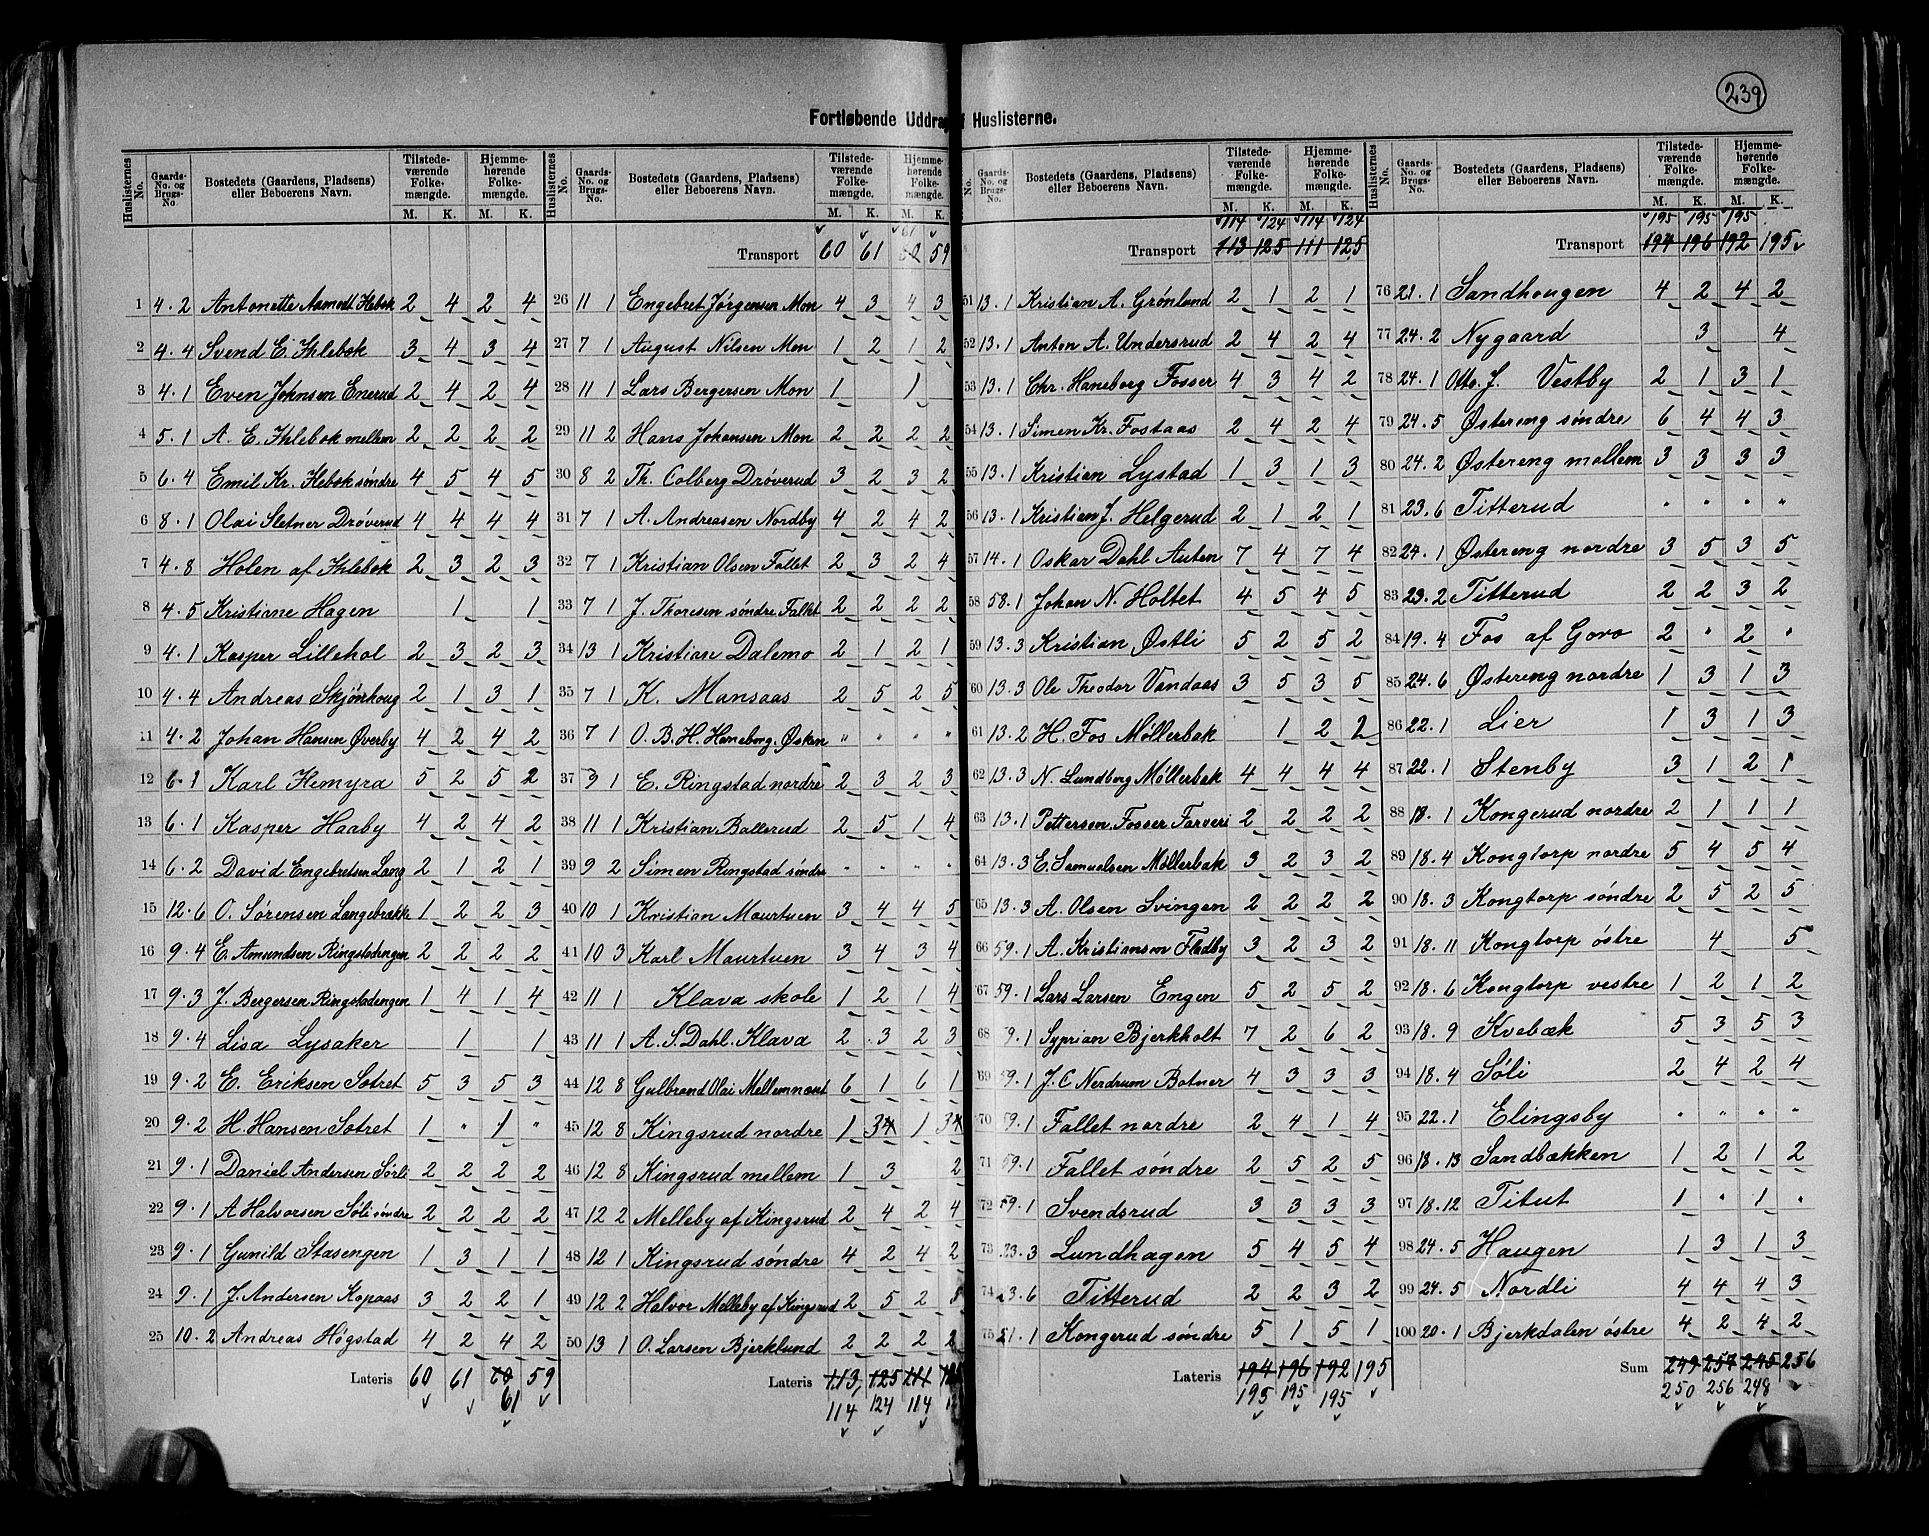 239
Fortløbende Uddrag af Huslisterne.
Huslisternes No. Gaards-No. og Brugs-No. Bostedets (Gaardens, Pladsens) eller Beboerens Navn. Tilstedeværende Folkemængde. M. K. Hjemmehørende Folkemængde. M. K.
1 4.2 Antonette Aamodt Hebok 2 4 2 4
2 4.4 Svend E. Ihlebok 3 4 3 4
3 4.1 Even Johnsen Enerud 2 4 2 4
4 5.1 A. E. Ihlebok mellem 2 2 2 2
5 6.4 Emil Kr. Hebok søndre 4 5 4 5
6 8.1 Olai Sletner Drøverud 4 4 4 4
7 4.8 Holen af Ihlebok 2 3 2 3
8 4.5 Kristiane Hagen 1 1
9 4.1 Kasper Lillehol 2 3 2 3
10 4.4 Andreas Skjønhoug 2 1 3 1
11 4.2 Johan Hansen Øverby 4 2 4 2
12 6.1 Karl Hemyra 5 2 5 2
13 6.1 Kasper Haaby 4 2 4 2
14 6.2 David Engebretsen Lang 2 1 2 1
15 12.6 O. Sørensen Langebrække 1 2 2 3
16 9.4 E. Amundsen Ringstadengen 2 2 2 2
17 9.3 J. Bergersen Ringstadengen 1 4 1 4
18 9.4 Lisa Lysaker 1 1
19 9.2 E. Eriksen Sotret 5 3 5 3
20 9.2 H. Hansen Sotret 1 " 1 "
21 9.1 Daniel Andersen Sørli 2 2 2 2
22 9.1 A Halvorsen Søli søndre 2 2 2 2
23 9.1 Gunild Stasengen 1 3 1 1
24 9.1 J. Andersen Kopaas 3 2 2 1
25 10.2 Andreas Høgstad 4 2 4 2
Lateris 60 61 60 59
61
Huslisternes No. Gaards-No. og Brugs-No. Bostedets (Gaardens, Pladsens) eller Beboerens Navn. Tilstedeværende Folkemængde. M. K. Hjemmehørende Folkemængde. M. K.
61
Transport 60 61 60 59
26 11 1 Engebret Jørgensen Mon 4 3 4 3
27 7 1 August Nilsen Mon 1 2 1 2
28 11 1 Lars Bergersen Mon 1 1
29 11 2 Hans Johansen Mon 2 2 2 2
30 8 2 Th. Colberg Drøverud 3 2 3 2
31 7 1 A. Andreasen Nordby 4 2 4 2
32 7 1 Kristian Olsen Fallet 2 3 2 4
33 7 1 J. Thoresen søndre Fallet 2 2 2 2
34 13 1 Kristian Dalemo 2 1 2 1
35 7 1 K. Mansaas 2 5 2 5
36 7 1 O. B. H. Haneborg, Østen " " " "
37 9 1 E. Ringstad nordre 2 3 2 3
38 11 1 Kristian Ballerud 2 5 1 4
39 9 2 Simen Ringstad søndre " " " "
40 10 1 Kristian Maurtuen 3 4 4 5
41 10 3 Karl Maurtuen 3 4 3 4
42 11 1 Klava skole 1 2 1 4
43 11 1 A. S. Dahl. Klava 2 3 2 3
44 12 8 Gulbrand Olai Mellemnæst 6 1 6 1
45 12 8 Kingsrud nordre 1 34 1 34
46 12 8 Kingsrud mellem 1 3 2
47 12 2 Melleby af Kingsrud 2 4 2 4
48 12 1 Kingsrud søndre 4 2 4 2
49 12 2 Halvor Melleby af Kingsrud 2 5 2
50 13 1 O. Larsen Bjerklund 2 2 2 2
Lateris 113, 125 111
114 124 114
No. Gaards-No. og Brugs-No. Bostedets (Gaardens, Pladsens) eller Beboerens Navn. Tilstedeværende Folkemængde. M. K. Hjemmehørende Folkemængde. M. K.
114 124 114 124
Transport 113 125 111 125
51 13.1 Kristian A. Grønlund 2 1 2 1
52 13.1 Anton A. Undersrud 2 4 2 4
53 13.1 Chr. Haneborg Fosser 4 3 4 2
54 13.1 Simen Kr. Fostaas 2 4 2 4
55 13.1 Kristian Lystad 1 3 1 3
56 13.1 Kristian J. Helgerud 2 1 2 1
57 14.1 Oskar Dahl Auten 7 4 7 4
58 58.1 Johan N. Holtet 4 5 4 5
59 13.3 Kristian Østli 5 2 5 2
60 13.3 Ole Theodor Vandaas 3 5 3 5
61 13.2 H. Fos Møllerbak 1 2 2
62 13.3 N. Lundborg Møllerbak 4 4 4 4
63 13.1 Pettersen, Fosser Farveri 2 2 2 2
64 13.3 E. Samuelsen Møllerbak 3 2 3 2
65 13.3 A. Olsen Svingen 2 2 2 2
66 59.1 A. Kristiansen Fladby 3 2 3 2
67 59.1 Lars Larsen Engen 5 2 5 2
68 59.1 Syprian Bjerkholt 7 2 6 2
69 59.1 J. C Nerdrum Botner 4 3 3 3
70 59.1 Fallet nordre 2 4 1 4
71 59.1 Fallet søndre 2 5 2 5
72 59.1 Svendsrud 3 3 3 3
73 23.3 Lundhagen 5 4 5 4
74 23.6 Titterud 2 2 3 2
75 21.1 Kongerud søndre 5 1 5 1
Lateris 194 196 192 195
195 195 195
Huslisternes No. Gaards-No. og Brugs-No. Bostedets (Gaardens, Pladsens) eller Beboerens Navn. Tilstedeværende Folkemængde. M. K. Hjemmehørende Folkemængde. M. K.
195 195 195
Transport 194 196 192 195
76 21.1 Sandhougen 4 2 4 2
77 24.2 Nygaard 3 4
78 24.1 Otto. J. Vestby 2 1 3 1
79 24.5 Østereng søndre 6 4 4 3
80 24.2 Østereng mellem 3 3 3 3
81 23.6 Titterud " " " "
82 24.1 Østereng nordre 3 5 3 5
83 23.2 Titterud 2 2 3 2
84 19.4 Fos af Goro 2 " 2 "
85 24.6 Østereng nordre 1 3 1 3
86 22.1 Lier 1 3 1 3
87 22.1 Stenby 3 1 2 1
88 18.1 Kongerud nordre 2 1 1 1
89 18.4 Kongtorp nordre 5 4 5 4
90 18.3 Kongtorp søndre 2 5 2 5
91 18.11 Kongtorp østre 4 5
92 18.6 Kongtorp vestre 1 2 1 2
93 18.9 Kvebæk 5 3 5 3
94 18.4 Søli 2 4 2 4
95 22.1 Elingsby " " " "
96 18.13 Sandbækken 1 2 1 2
97 18.12 Titut 1 " 1 "
98 24.5 Haugen 1 3 1 3
99 24.5 Nordli 4 4 4 3
100 20.1 Bjerkdalen østre 4 2 4 2
Sum 249 257 245 256
250 256 248